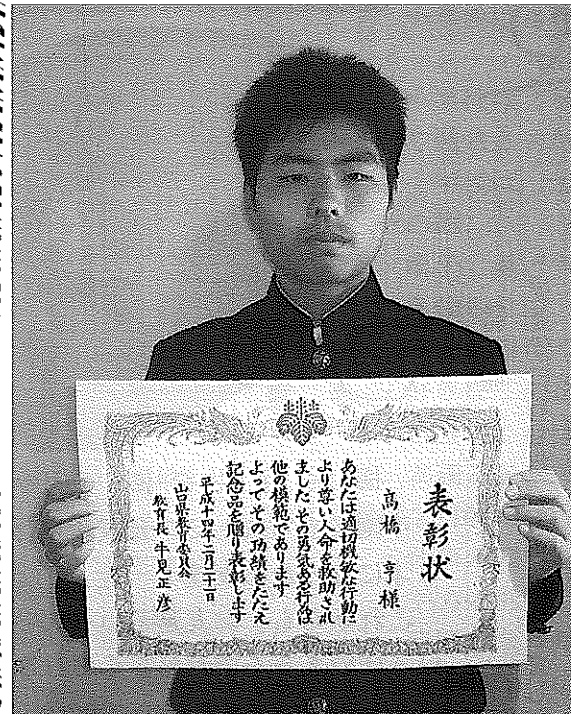 表彰状
高橋 亨 様
あなたは適切機敏な行動に
より尊い人命を救助され
ました その勇気ある行為は
他の模範であります
よってその功績をたたえ
記念品を贈り表彰します
平成十四年二月二十二日
山口県教育委員会
教育長 牛見正彦